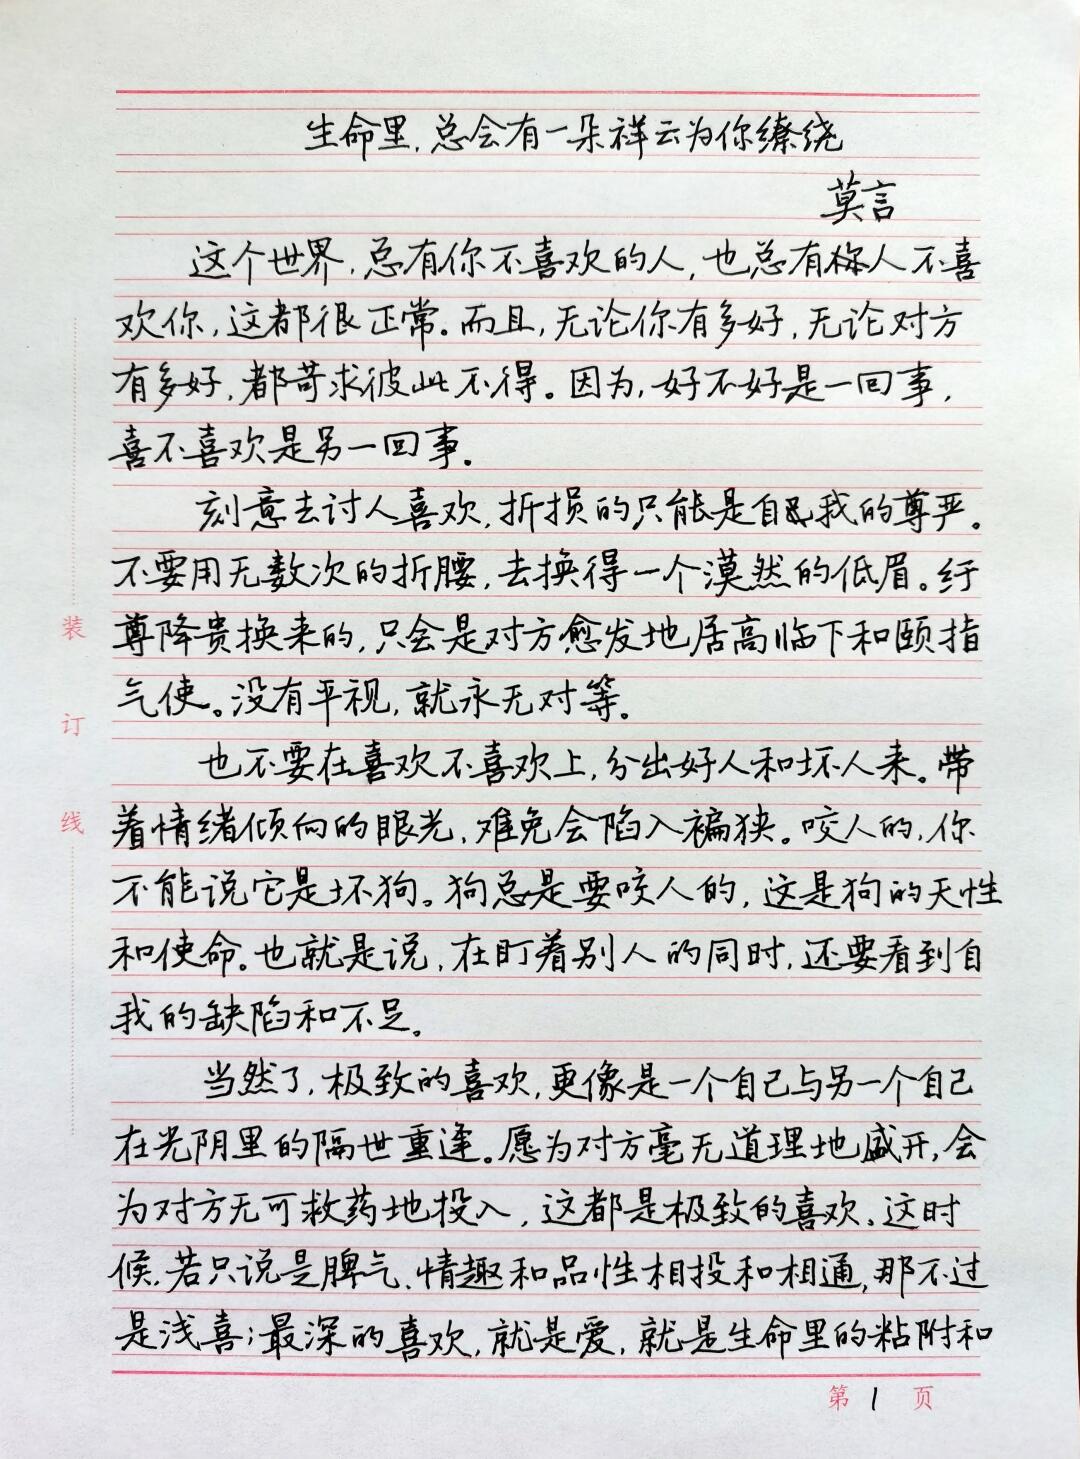 生命里,总会有一朵祥云为你缭绕
莫言
这个世界,总有你不喜欢的人,也总有人不喜
欢你,这都很正常。而且,无论你有多好,无论对方
有多好,都苛求彼此不得。因为,好不好是一回事,
喜不喜欢是另一回事。
刻意去讨人喜欢,折损的只能是自我的尊严。
不要用无数次的折腰,去换得一个漠然的低眉。纡
尊降贵换来的,只会是对方愈发地居高临下和颐指
气使。没有平视,就永无对等。
也不要在喜欢不喜欢上,分出好人和坏人来。带
着情绪倾向的眼光,难免会陷入褊狭。咬人的,你
不能说它是坏狗。狗总是要咬人的,这是狗的天性
和使命。也就是说,在盯着别人的同时,还要看到自
我的缺陷和不足。
当然了,极致的喜欢,更像是一个自己与另一个自己
在光阴里的隔世重逢。愿为对方毫无道理地盛开,会
为对方无可救药地投入,这都是极致的喜欢。这时
候,若只说是脾气、情趣和品性相投和相通,那不过
是浅喜;最深的喜欢,就是爱,就是生命里的粘附和
装
订
线
第 1 页